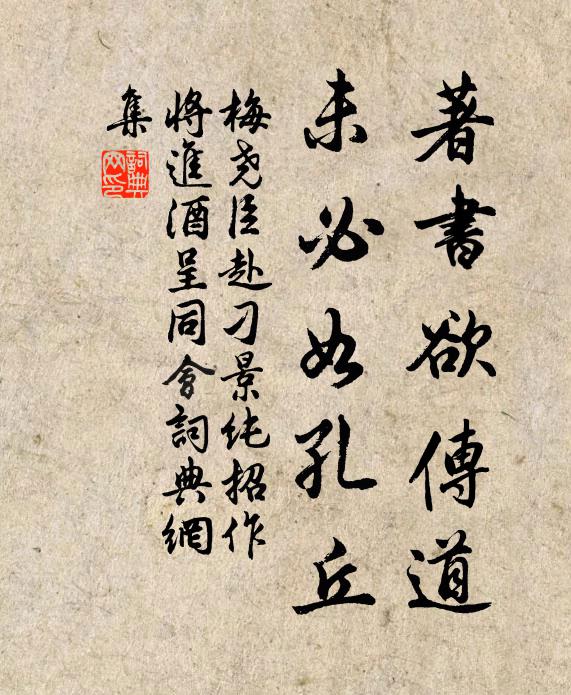 著書欲傳道
未必如孔丘
梅尧臣赴刁景纯招作
將進酒呈同會詞典網
集
詞典
网印